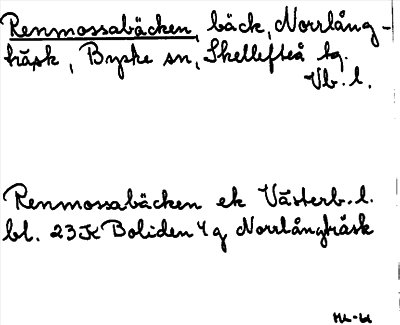 Renmossabäcken, bäck, Norrlång-
träsk, Byske sn, Skellefteå tg.
Vb. l.
Renmossabäcken ek Västerb. l.
bl. 23 K Boliden 4 g Norrlångträsk